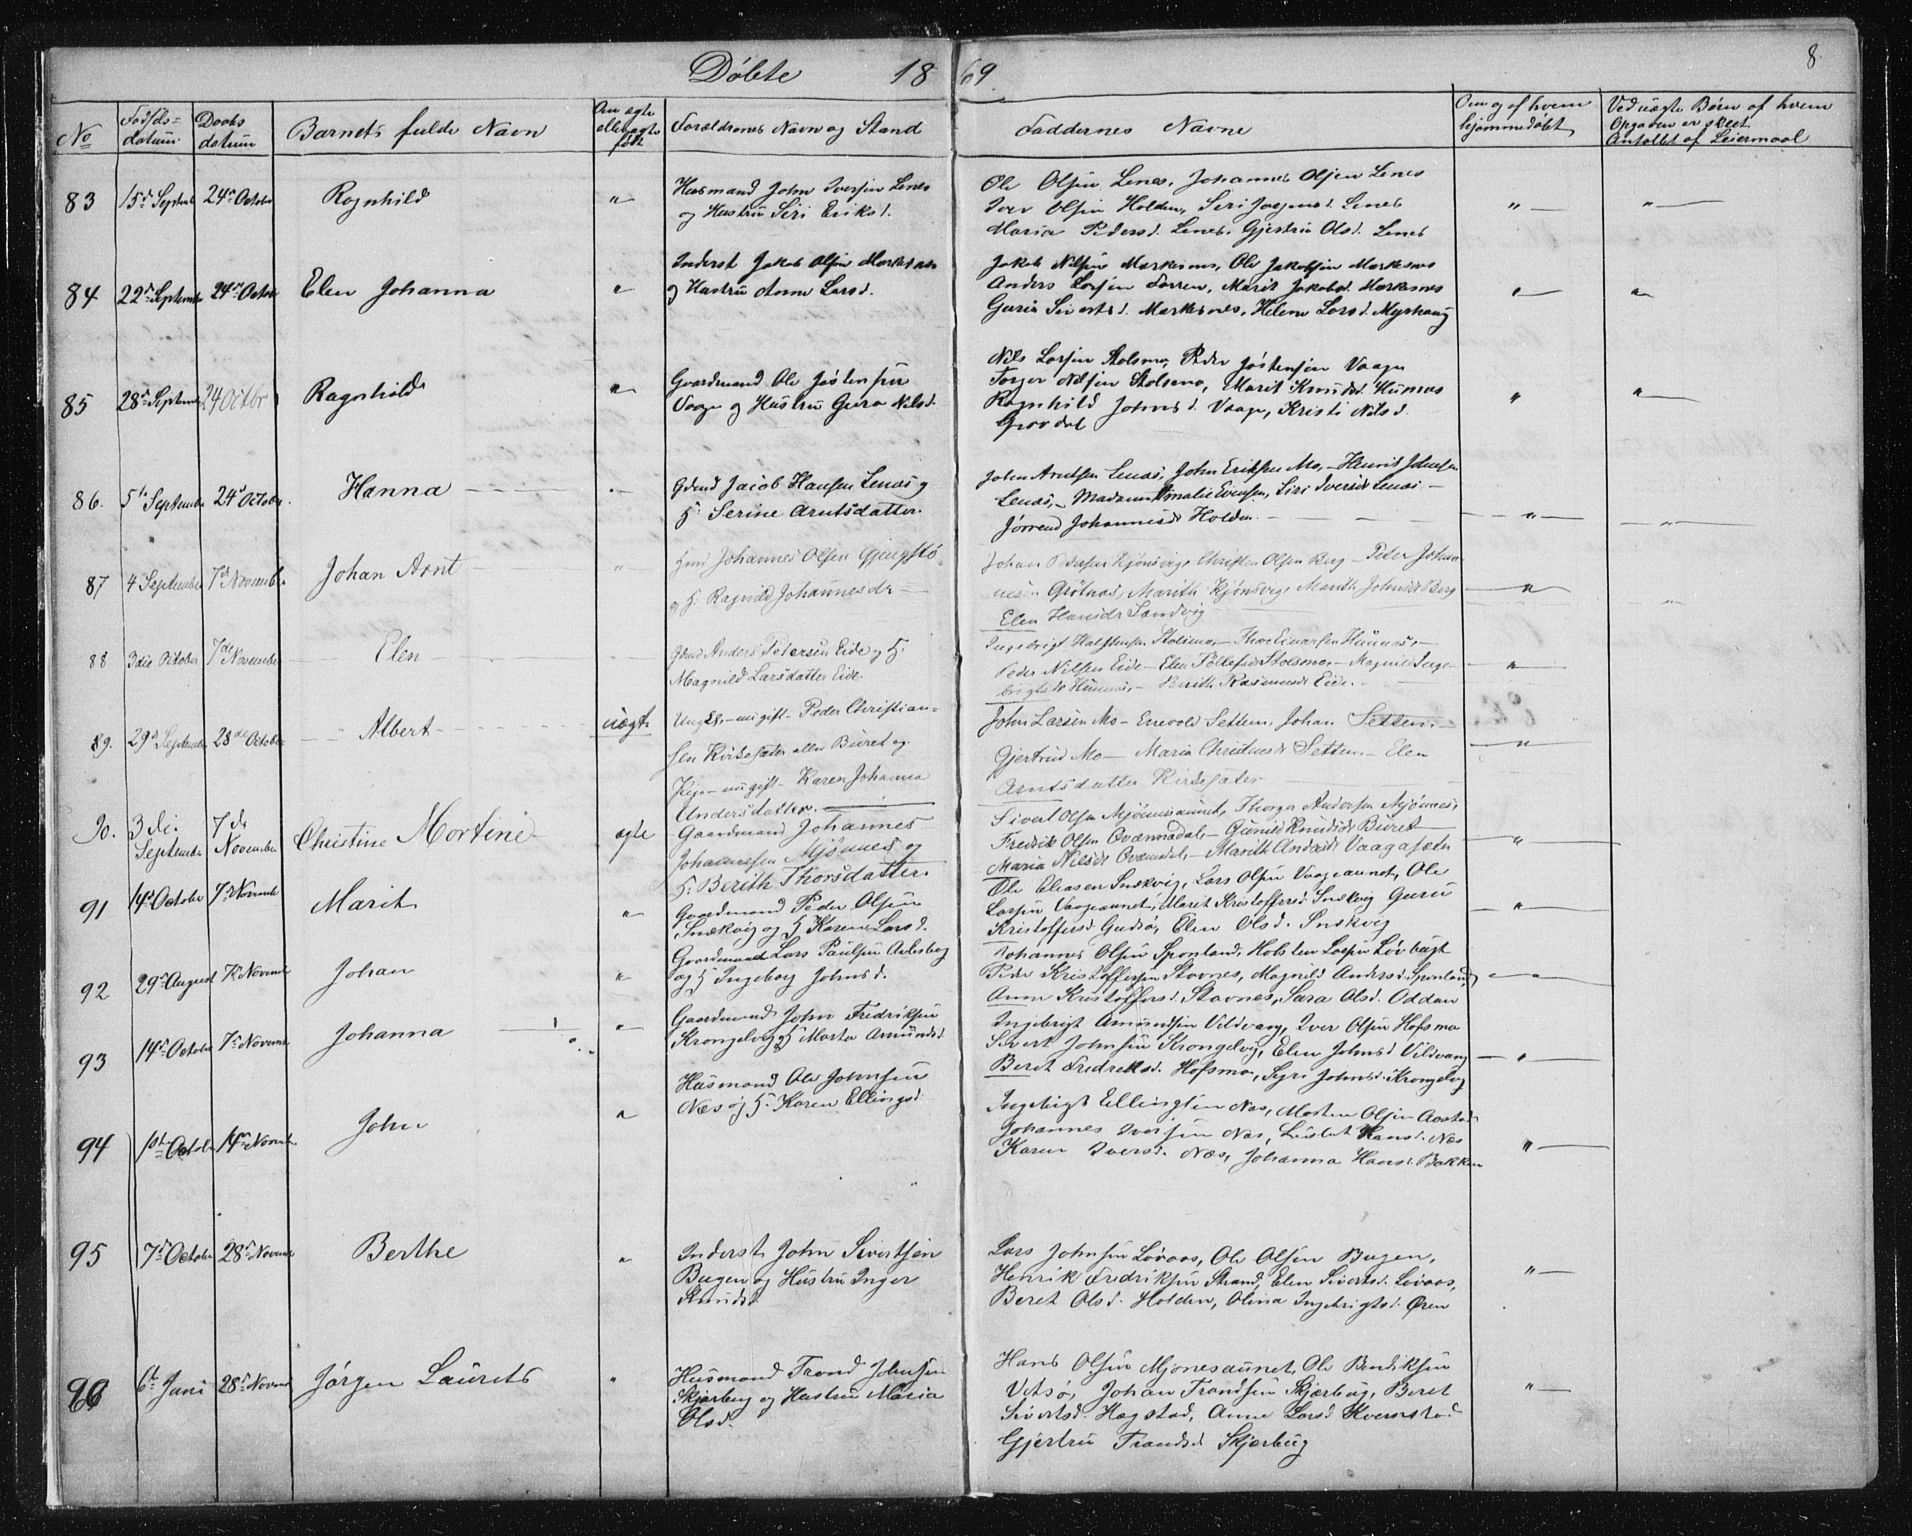 Døbte 18 69. 8.
No Fødselsdatum Daabsdatum Barnets fulde Navn Om ægte eller uægte født Forældrenes Navn og Stand Faddernes Navne Om og af hvem hjemmedøbt Ved uægte Børn af hvem Opgaven er skeet Antallet af Leiermaal
83 15de Septemb 24de Octobr Ragnhild " Husmand John Iversen Lenes
og Hustru Siri Eriksd.
Ole Olsen Lenes, Johannes Olsen Lenes
Iver Olsen Holden, Siri Joegensd. Lenes
Maria Pedersd. Lenes, Gjertru Olsd. Lenes
84 22de Septemb 24de Octobr Elen Johanna " Inderst Jakob Olsen Markesnes
og Hustru Anne Larsd.
Jakob Nilsen Markesnes, Ole Jakobsen Markesnes
Anders Larsen Forren, Marit Jakobsd. Markesnes
Guria Sivertsd. Markesnes, Helene Larsd. Myrhaug
85 28de Septemb 24 Octbr Ragnhild " Gaardmand Ole Jøstensen
Vaage og Hustru Guro Nilsd.
Nils Larsen Stolsmo, Peder Jøstensen Vaage
Torger Nilsen Stolsmo, Marit Knudsd. Humnes
Ragnhild Johnsd. Vaage, Kristi Nilsd.
Grovdal
86. 5te September 24de October. Hanna " Gdmd Jacob Hansen Lenes og
H. Serine Arntsdatter.
John Arntsen Lenes, John Eriksen Mo,
Lenes, Madame Amalie Evensen, Siri Iversdr Lenes
Jørrend Johannesdr Holden
87 4 September 7de November Johan Arnt " Johannes Olsen
og H. Ragnild Johannesdr
Johan Pedersen Kjønsvig, Christen Olsen Berg Peter Johan
nesen Grøtnes, Marith Kjønsvig, Marith Johnsdr Berg
Elen Hansdr Sandvig
88 3die October 7de November Elen " Anders Petersen Eide og H.
Magnild Larsdatter Eide
Ingebrigt Halfstensen Stolsmo, Thore Einarsen Humnes,
Peder Nilsen Eide Elen Tollefsdr Stolsmo, Magnild Inge
brigtsdr Humnes, Berith Rasmusdr Eide.
89. 29de September 28de October Albert uægte Ungkr, ugift Peder Christian
sen Kirksæter eller Buret og
Pige ugift Karen Johanna
Andersdatter.
John Larsen Mo Enevold Settem, Johan Settem,
Gjertrud Mo Maria Christensdr Settem Elen
Arntsdatter Kirksæter
90. 3die September 7de November Christine Mortine ægte Gaardmand Johannes
Johannesen Mjønnes og
H. Berith Thorsdatter.
Sivert Olsen Mjønnesaunet, Thorger Andersen Mjønnes,
Fredrik Olsen Qvænnadal, Gunild Knudsdr Buret
Maria Nilsdr Qvændal, Marith Andersdr Vaagasæter
91 14de October 7de Novemb Marit " Gaardmand Peder Olsen
Snekvig og H Karen Larsd.
Ole Eliasen Snekvig, Lars Olsen Vaageaunet, Ole
Larsen Vaageaunet, Marit Kristoffersd Snekvig Guru
Kristoffersd Gudsø, Elen Olsd. Snekvig
92 29de August 7de Novemb Johan " Gaardmand Lars Paulsen Aelesberg
og H Ingeborg Johnsd.
Johannes Olsen Sponland, Halsten Larsen Løvbugt
Peder Kristoffersen Stavnes, Magnild Andersd. Sponland
Anne Kristoffersd. Stavnes, Sara Olsd. Oddan
93 14de October 7de Novemb Johanna " Gaardmand John Fredriksen
Krongelvg og H Marta Amundsd
Ingebrigt Amundsen Vildvang, Iver Olsen Hofsmo
Sivert Johnsen Krongelvg, Elen Johnsd Vildvang
Beret Fredriksd. Hofsmo, Syri Johnsd. Krongelvg
94 1ste October 14de Novemb John " Husmand Ole Johnsen
Næs og H. Karen Ellingsd.
Ingebrigt Ellingsen Næs, Morten Olsen Aastad
Johannes Iversen Næs, Lisbet Hansd. Næs
Karen Iversd. Næs, Johanna Hansd. Bakken
95 7de October 28de Novemb Berthe " Inderst John Sivertsen
Bugen og Hustru Inger
Knudsd.
Lars Johnsen Løvaas, Ole Olsen Bugen,
Henrik Fredriksen Strand, Elen Sivertsd. Løvaas,
Beret Olsd. Holden, Olina Ingebrigtsd. Øren
96 6te Juni 28de Novemb Jørgen Laurets " Husmand Trond Johnsen
Skjærbug og Hustru Maria
Olsd.
Hans Olsen Mjønesaunet, Ole Bendiksen
Vetsø, Johan Trondsen Skjærbug, Beret
Sivertsd. Hagstad, Anne Larsd Kvernstad
Gjertru Trondsd Skjærbug